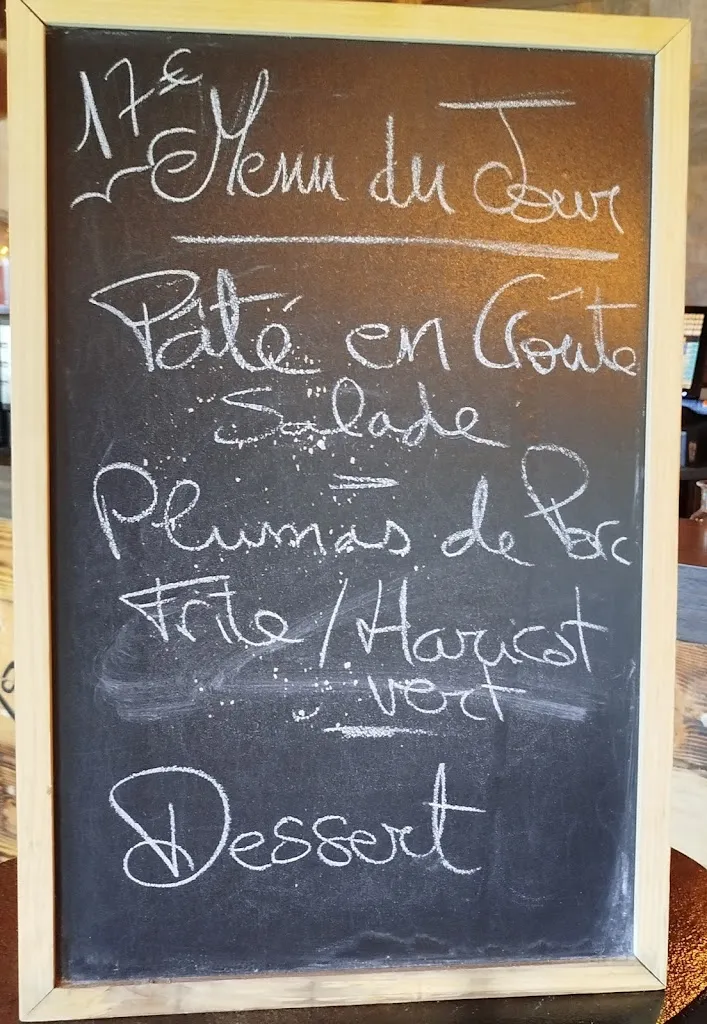 17€
Menu du Jour
Pâté en Croûte
Salade
Plumas de Porc
Frite/Haricot
vert
Dessert